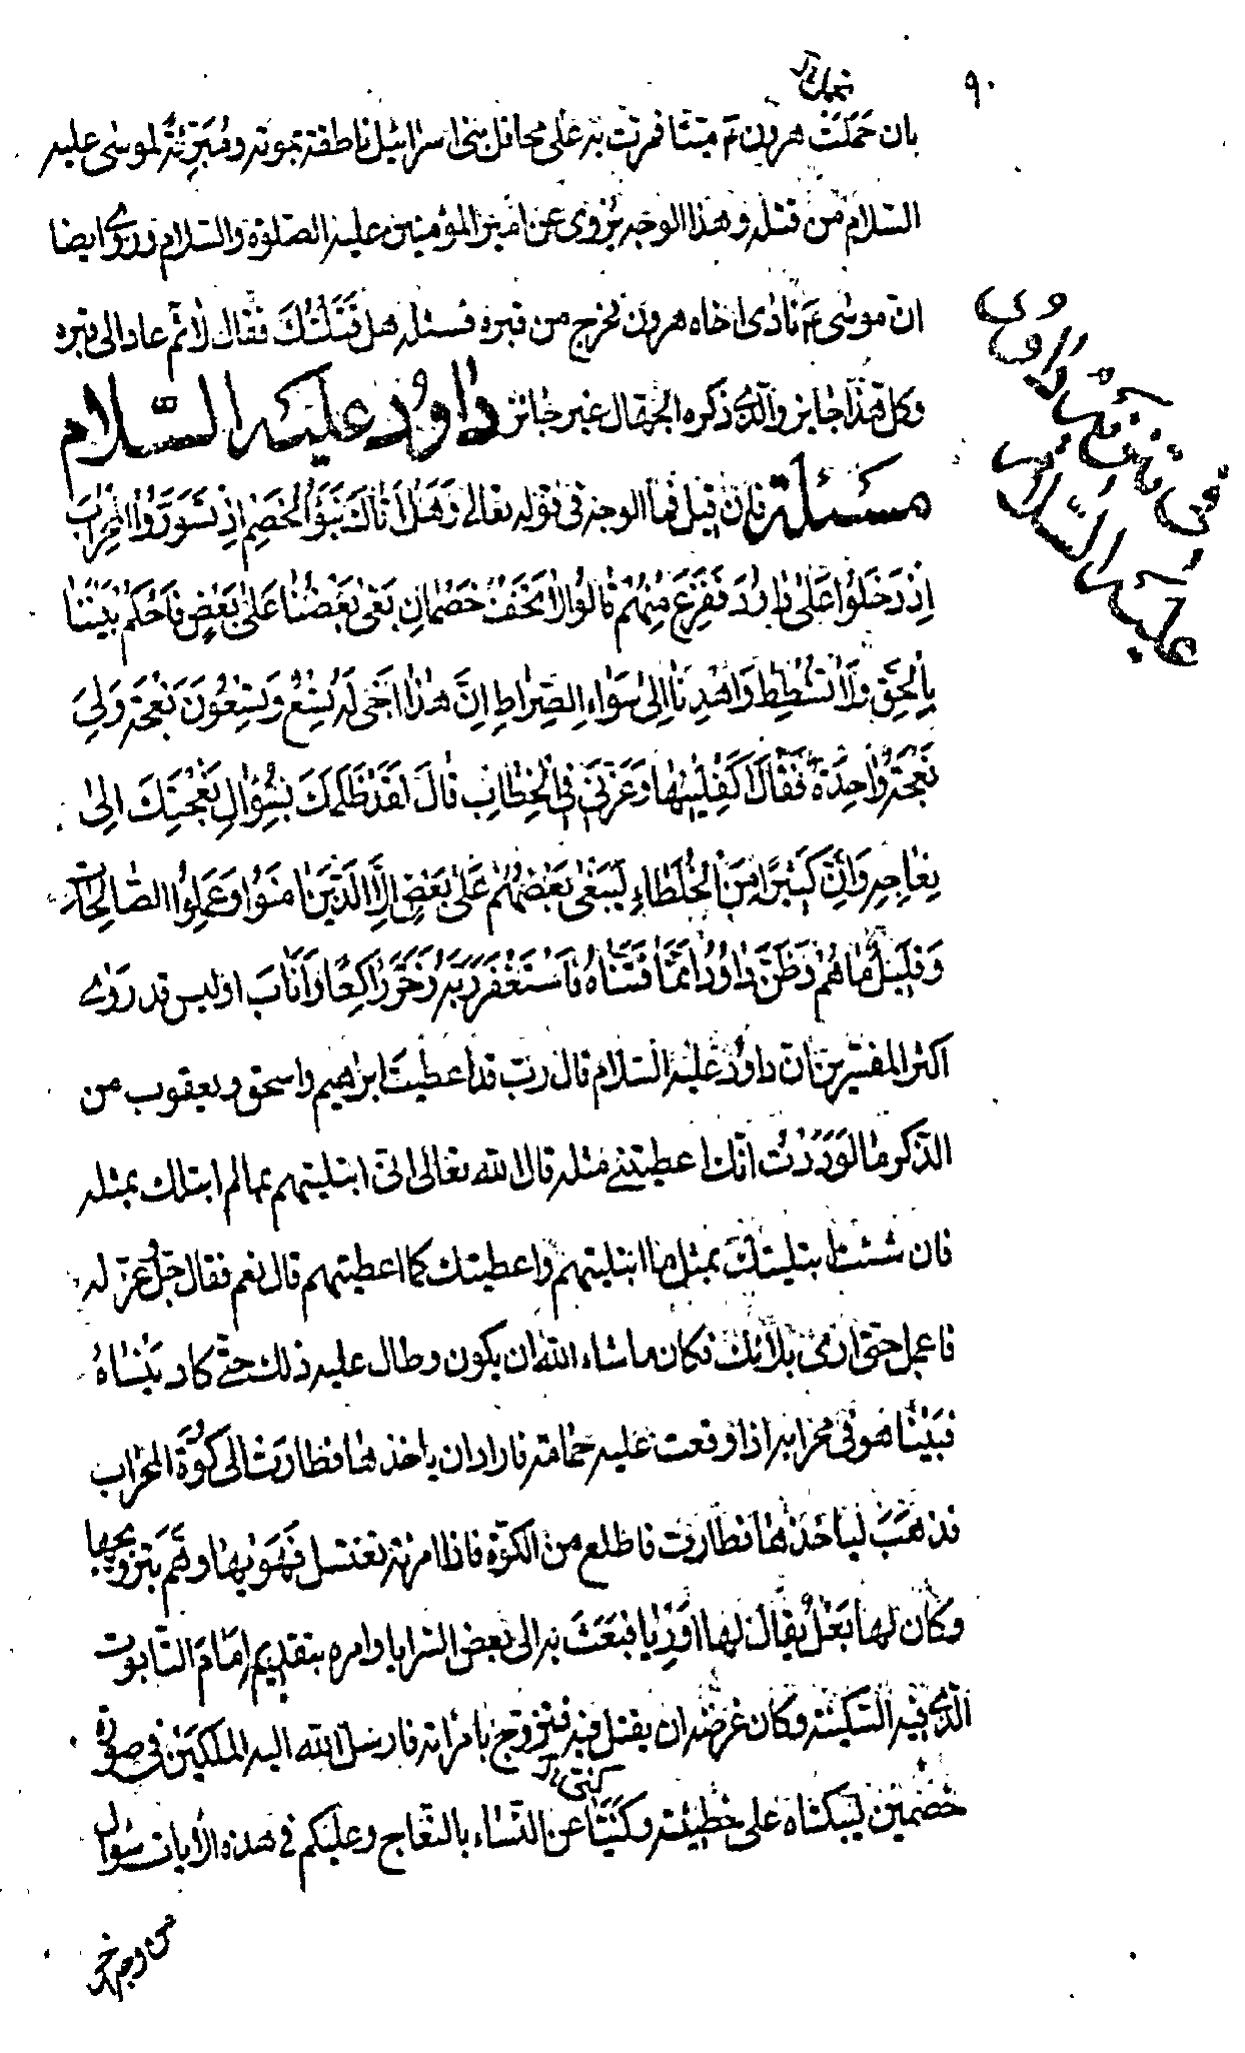 ٩٠
بان حملت هرون ؏ ميتا فمرت به على محافل بنى اسرائيل ناطقة بموته ومبرئة لموسى عليه
السلام من قتله وهذا الوجه يروى عن امير المؤمنين عليه الصلوة والسلام وروى ايضا
ان موسى ؏ نادى اخاه هرون فخرج من قبره فسئله هل قتلتك فقال لا ثم عاد الى قبره
وكل هذا جايز والذى ذكره الجهال غير جائز داود عليه السلام
فى تنزيه داود
عليه السلام
مسئلة فان قيل فما الوجه فى قوله تعالى وَهَلْ اَتٰاكَ نَبَؤُا الْخَصْمِ اِذْ تَسَوَّرُوا الْمِحْرٰابَ
اِذْ دَخَلُوا عَلىٰ دٰاوُدَ فَفَزِعَ مِنْهُمْ قٰالُوا لاٰ تَخَفْ خَصْمٰانِ بَغىٰ بَعْضُنٰا عَلىٰ بَعْضٍ فَاحْكُمْ بَيْنَنٰا
بِالْحَقِّ وَلاٰ تُشْطِطْ وَاهْدِنٰا اِلىٰ سَوٰاءِ الصِّرٰاطِ اِنَّ هٰذٰا اَخى لَهُ تِسْعٌ وَتِسْعُونَ نَعْجَةً وَلِىَ
نَعْجَةٌ وٰاحِدَةٌ فَقٰالَ اَكْفِلْنيهٰا وَعَزَّنى فِى الْخِطٰابِ قٰالَ لَقَدْ ظَلَمَكَ بِسُؤٰالِ نَعْجَتِكَ اِلىٰ
نِعٰاجِهِ وَاِنَّ كَثيرًا مِنَ الْخُلَطٰاءِ لَيَبْغى بَعْضُهُمْ عَلىٰ بَعْضٍ اِلاَّ الَّذينَ اٰمَنُوا وَعَمِلُوا الصّٰالِحٰاتِ
وَقَليلٌ مٰا هُمْ وَظَنَّ دٰاوُدُ اَنَّمٰا فَتَنّٰاهُ فَاسْتَغْفَرَ رَبَّهُ وَخَرَّ رٰاكِعًا وَاَنٰابَ اوليس قد روى
اكثر المفسرين ان داود عليه السلام قال رب قد اعطيت ابراهيم واسحق ويعقوب من
الذكر ما لوددت انك اعطيتنى مثله قال الله تعالى انى ابتليتهم بما لم ابتلك بمثله
فان شئت ابتليتك بمثل ما ابتليتهم واعطيتك كما اعطيتهم قال نعم فقال جل وعز له
فاعمل حتى ارى بلائك فكان ما شاء الله ان يكون وطال عليه ذلك حتى كاد ينساه
فبينا هو فى محرابه اذا وقعت عليه حمامة فاراد ان ياخذها فطارت الى كوة المحراب
فذهب لياخذها فطارت فاطلع من الكوة فاذا امرئة تغتسل فهويها وهم بتزويجها
وكان لها بعل يقال لها اوريا فبعث به الى بعض السرايا وامره بتقديم امام التابوت
الذى فيه السكينة وكان غرضه ان يقتل فيه فيتزوج بامراته فارسل الله اليه الملكين فى صورة
خصمين ليبكتاه على خطيئته وكنيا عن النساء بالنعاج وعليكم فى هذه الآيات سؤال
من وجه آخر